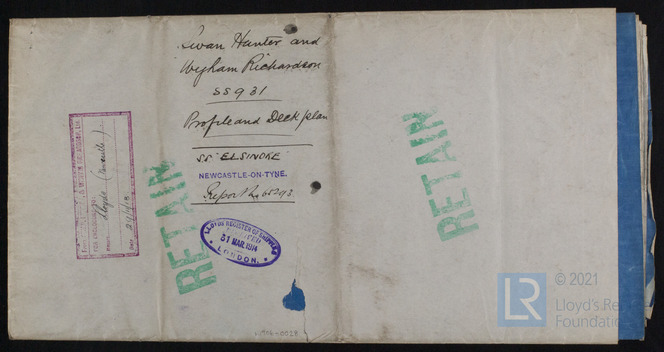 Swan Hunter and
Wigham Richardson
SS 931
Profile and Deck plan
SS "ELSINORE"
NEWCASTLE-ON-TYNE.
Report No 65293.
LLOYD'S REGISTER OF SHIPPING
RECEIVED
31 MAR. 1914
LONDON.
RETAIN
RETAIN
Lloyds (Newcastle)
Date
W906-0028
LR
© 2021
Lloyd's Re
Foundati